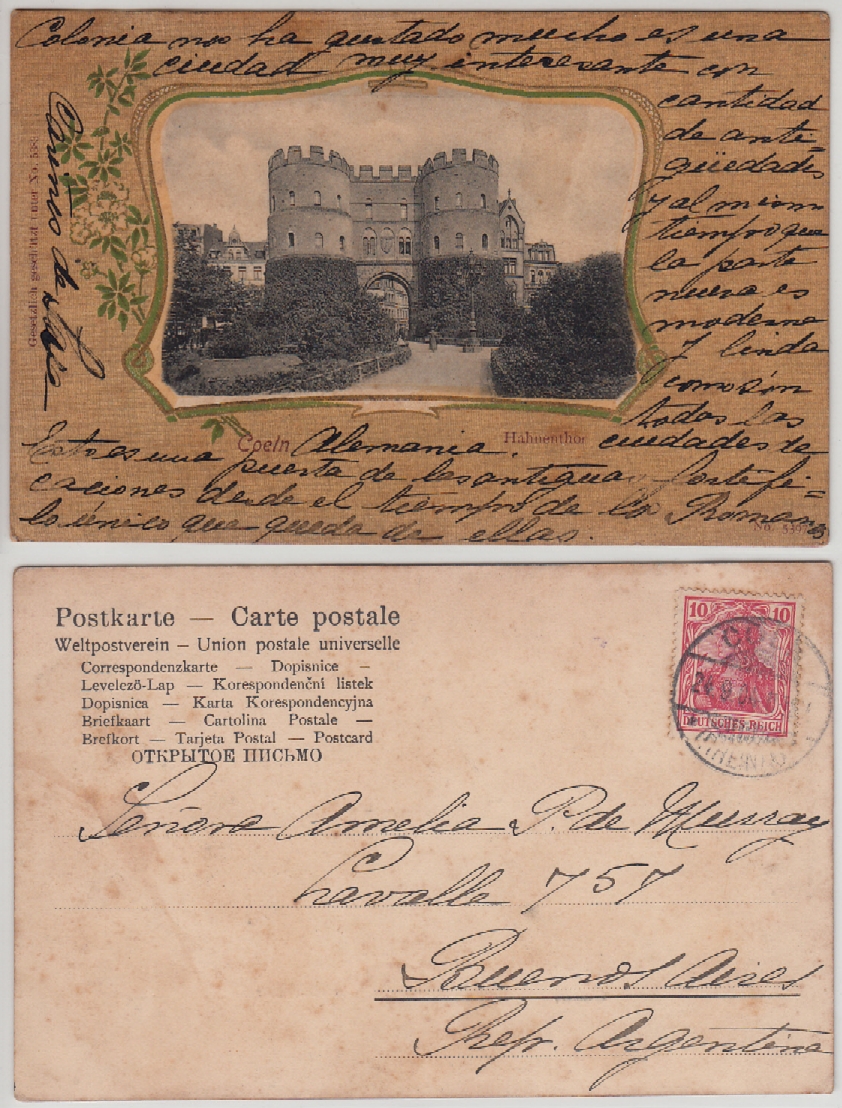 Colonia nos ha gustado mucho es una
ciudad muy interesante con
cantidad
de anti-
güedades
y al mismo
tiempo que
la parte
nueva es
moderna
y linda
como son
todas las
ciudades de
Alemania.
Esto es una
puerta de las antiguas fortifi-
caciones desde el tiempo de los Romanos
lo único que queda de ellas.
Cariños de
Gesetzlich geschützt unter No.
Coeln
Hahnenthor
No.
Postkarte — Carte postale
Weltpostverein – Union postale universelle
Correspondenzkarte — Dopisnice –
Levelező-Lap — Korespondenční listek
Dopisnica — Karta Korespondencyjna
Briefkaart — Cartolina Postale —
Brefkort — Tarjeta Postal — Postcard
ОТКРЫТОЕ ПИСЬМО
10 10
DEUTSCHES REICH
Señora Amelia P. de Murray
Lavalle 757
Buenos Aires
Rep. Argentina